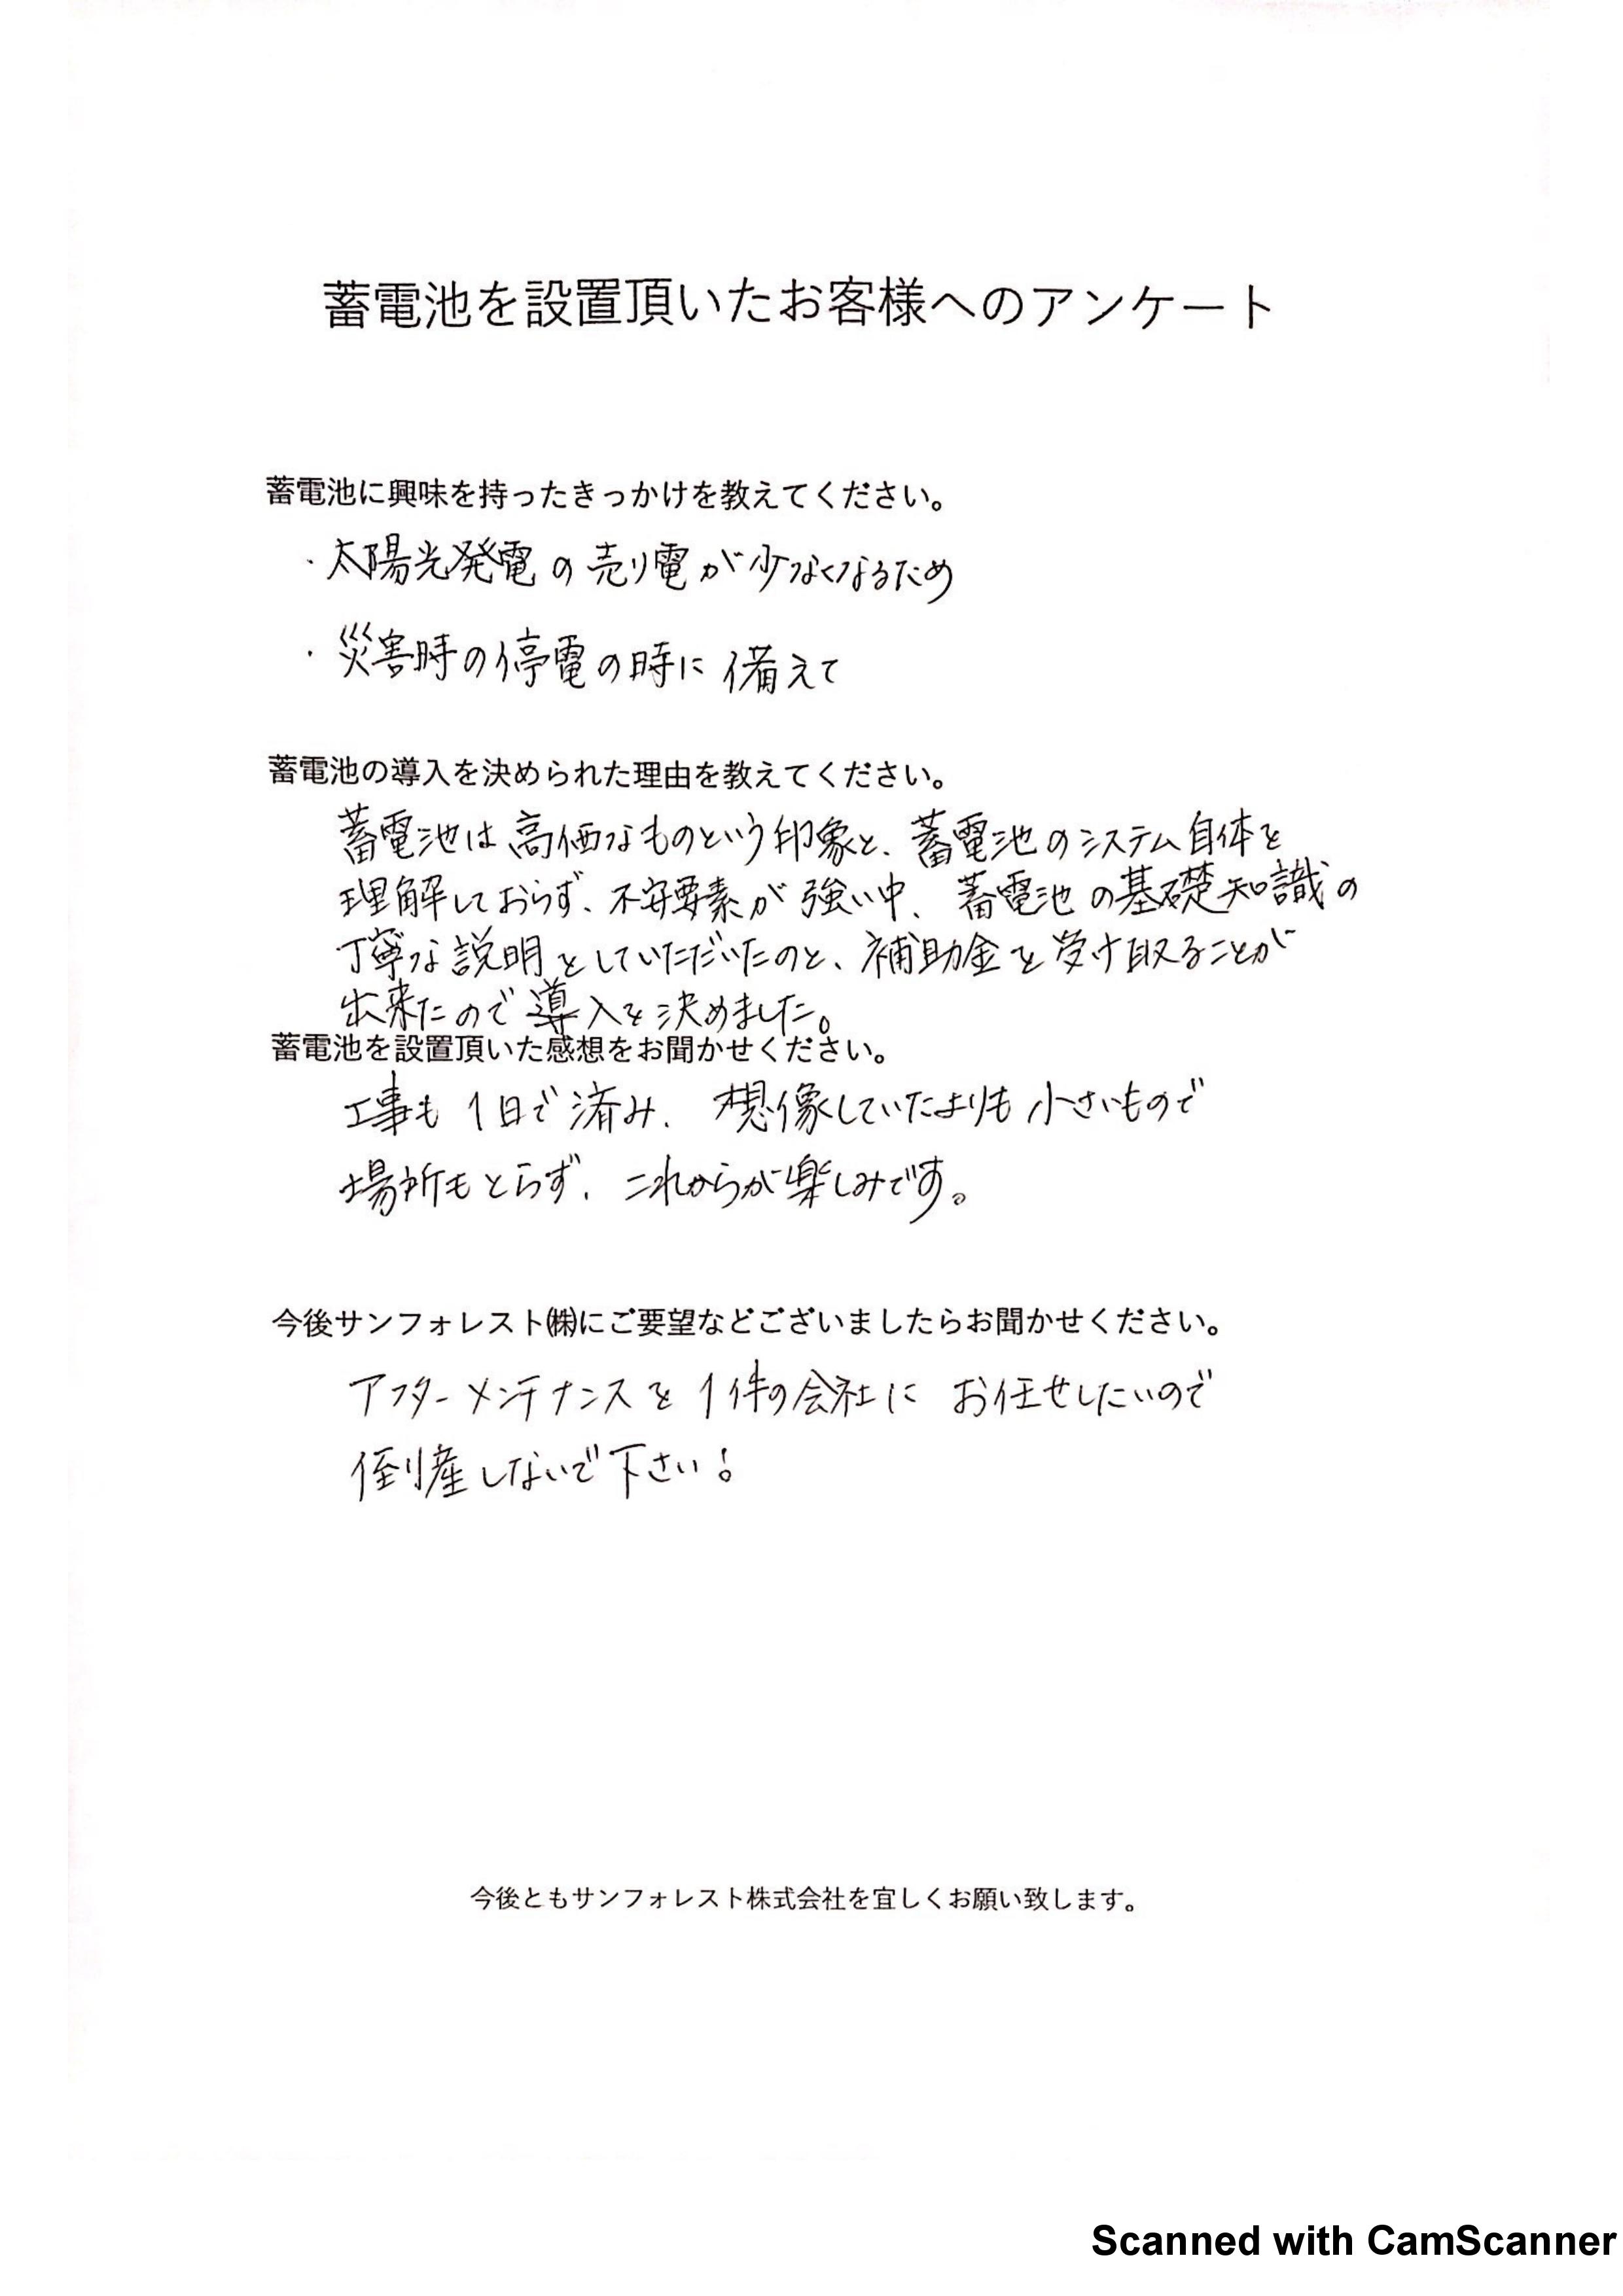 蓄電池を設置頂いたお客様へのアンケート
蓄電池に興味を持ったきっかけを教えてください。
・太陽光発電の売り電が少なくなるため
・災害時の停電の時に備えて
蓄電池の導入を決められた理由を教えてください。
蓄電池は高価なものという印象と、蓄電池のシステム自体を
理解しておらず、不安要素が強い中、蓄電池の基礎知識の
丁寧な説明をしていただいたのと、補助金を受け取ることが
出来たので導入を決めました。
蓄電池を設置頂いた感想をお聞かせください。
工事も1日で済み、想像していたよりも小さいもので
場所もとらず、これからが楽しみです。
今後サンフォレスト㈱にご要望などございましたらお聞かせください。
アフターメンテナンスを1件の会社にお任せしたいので
倒産しないで下さい!
今後ともサンフォレスト株式会社を宜しくお願い致します。
Scanned with CamScanner